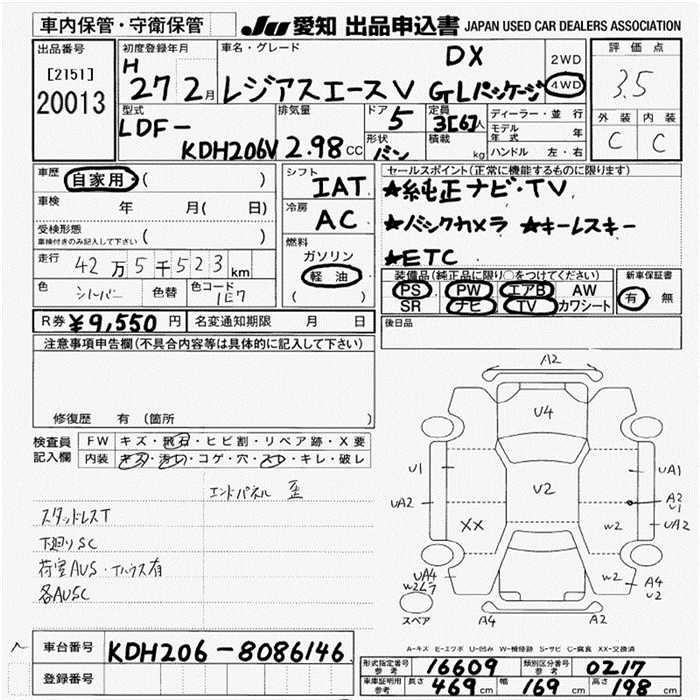 車内保管・守衛保管
JU 愛知 出品申込書 JAPAN USED CAR DEALERS ASSOCIATION
出品番号
[2151]
20013
初度登録年月
H 27年 2月
車名・グレード
レジアスエースV
DX
GLパッケージ
2WD
4WD
評価点
3.5
外装 内装
C C
型式
LDF-
KDH206V
排気量
2.98 CC
ドア 5
形状 バン
定員 3[6]人
積載 kg
ディーラー・並行
モデル年式 年
ハンドル 左・右
車歴 自家用 ( )
車検 年 月( 日)
受検形態
車検付きのみ記入して下さい ( )
走行 42万5千523km
色 シルバー 色替 色コード 1E7
シフト IAT
冷房 AC
燃料
ガソリン
軽油
( )
セールスポイント(正常に機能するものに限ります)
★純正ナビ・TV
★バックカメラ ★キーレスキー
★ETC
装備品(純正品に限り○をつけてください)
PS PW エアB AW
SR ナビ TV カワシート
新車保証書
有 無
R券 ¥9,550円 名変通知期限 月 日
後日品
注意事項申告欄(不具合内容等は具体的に記入して下さい)
修復歴 有(箇所 )
検査員記入欄
FW キズ・飛石・ヒビ割・リペア跡・X要
内装 キズ・汚れ・コゲ・穴・スレ・キレ・破レ
エンドパネル 歪
スタッドレスT
下廻りSC
荷室AUS・Tハウス有
各AUSC
A2
U4
U1
UA1
U2
UA2
A2
U1
UA2
XX
W2
UA4
W2
W2
A4
U2
スペア
A4
A2
A-キズ E-エクボ U-凹み W-補修跡 S-サビ C-腐食 XX-交換済
車台番号 KDH206-8086146
登録番号
型式指定番号参考 16609 類別区分番号参考 0217
車庫証明用参考 長さ 469cm 幅 169cm 高さ 198cm